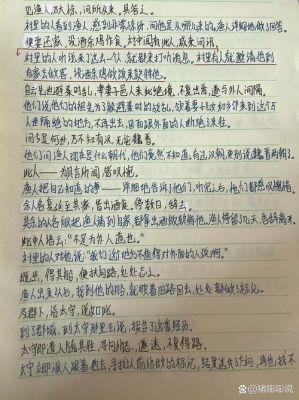 见渔人，乃大惊，问所从来。具答之。
村里的人看到渔人感到非常惊讶，问他是从哪儿来的。渔人详细地做了回答。
便要还家，设酒杀鸡作食。村中闻有此人，咸来问讯。
村里的人听说来了这么一个人，就都来打听消息。村里有人就邀请他到
自家去做客，设酒杀鸡做饭来款待他。
自云先世避秦时乱，率妻子邑人来此绝境，不复出焉，遂与外人间隔。
他们说他们的祖先为了躲避秦时的战乱，领着妻子儿女和乡邻来到这个与
人世隔绝的地方，不再出去，因而跟外面的人断绝来往。
问今是何世，乃不知有汉，无论魏晋。
他们问渔人现在是什么朝代，他们竟然不知道有过汉朝，更别说魏晋两朝了。
此人一一为具言所闻，皆叹惋。
渔人把自己知道的事一一详细地告诉了他们，听完以后，他们都感叹惋惜。
余人各复延至其家，皆出酒食。停数日，辞去。
其余的人各自把渔人请到自家，都拿出酒饭款待他。渔人停留了几天，告辞离开。
此中人语云：“不足为外人道也。”
村里的人对他说：“我们这个地方不值得对外面的人说啊。”
既出，得其船，便扶向路，处处志之。
渔人出来以后，找到他的船，就顺着旧路回去，处处都做了标记。
及郡下，诣太守，说如此。
到了郡城，到太守那里去说，报告了这番经历。
太守即遣人随其往，寻向所志，遂迷，不复得路。
太守立即派人跟着他去，寻找以前所做的标记，结果迷失了方向，再也找不
百家号/猪嘟嘟说